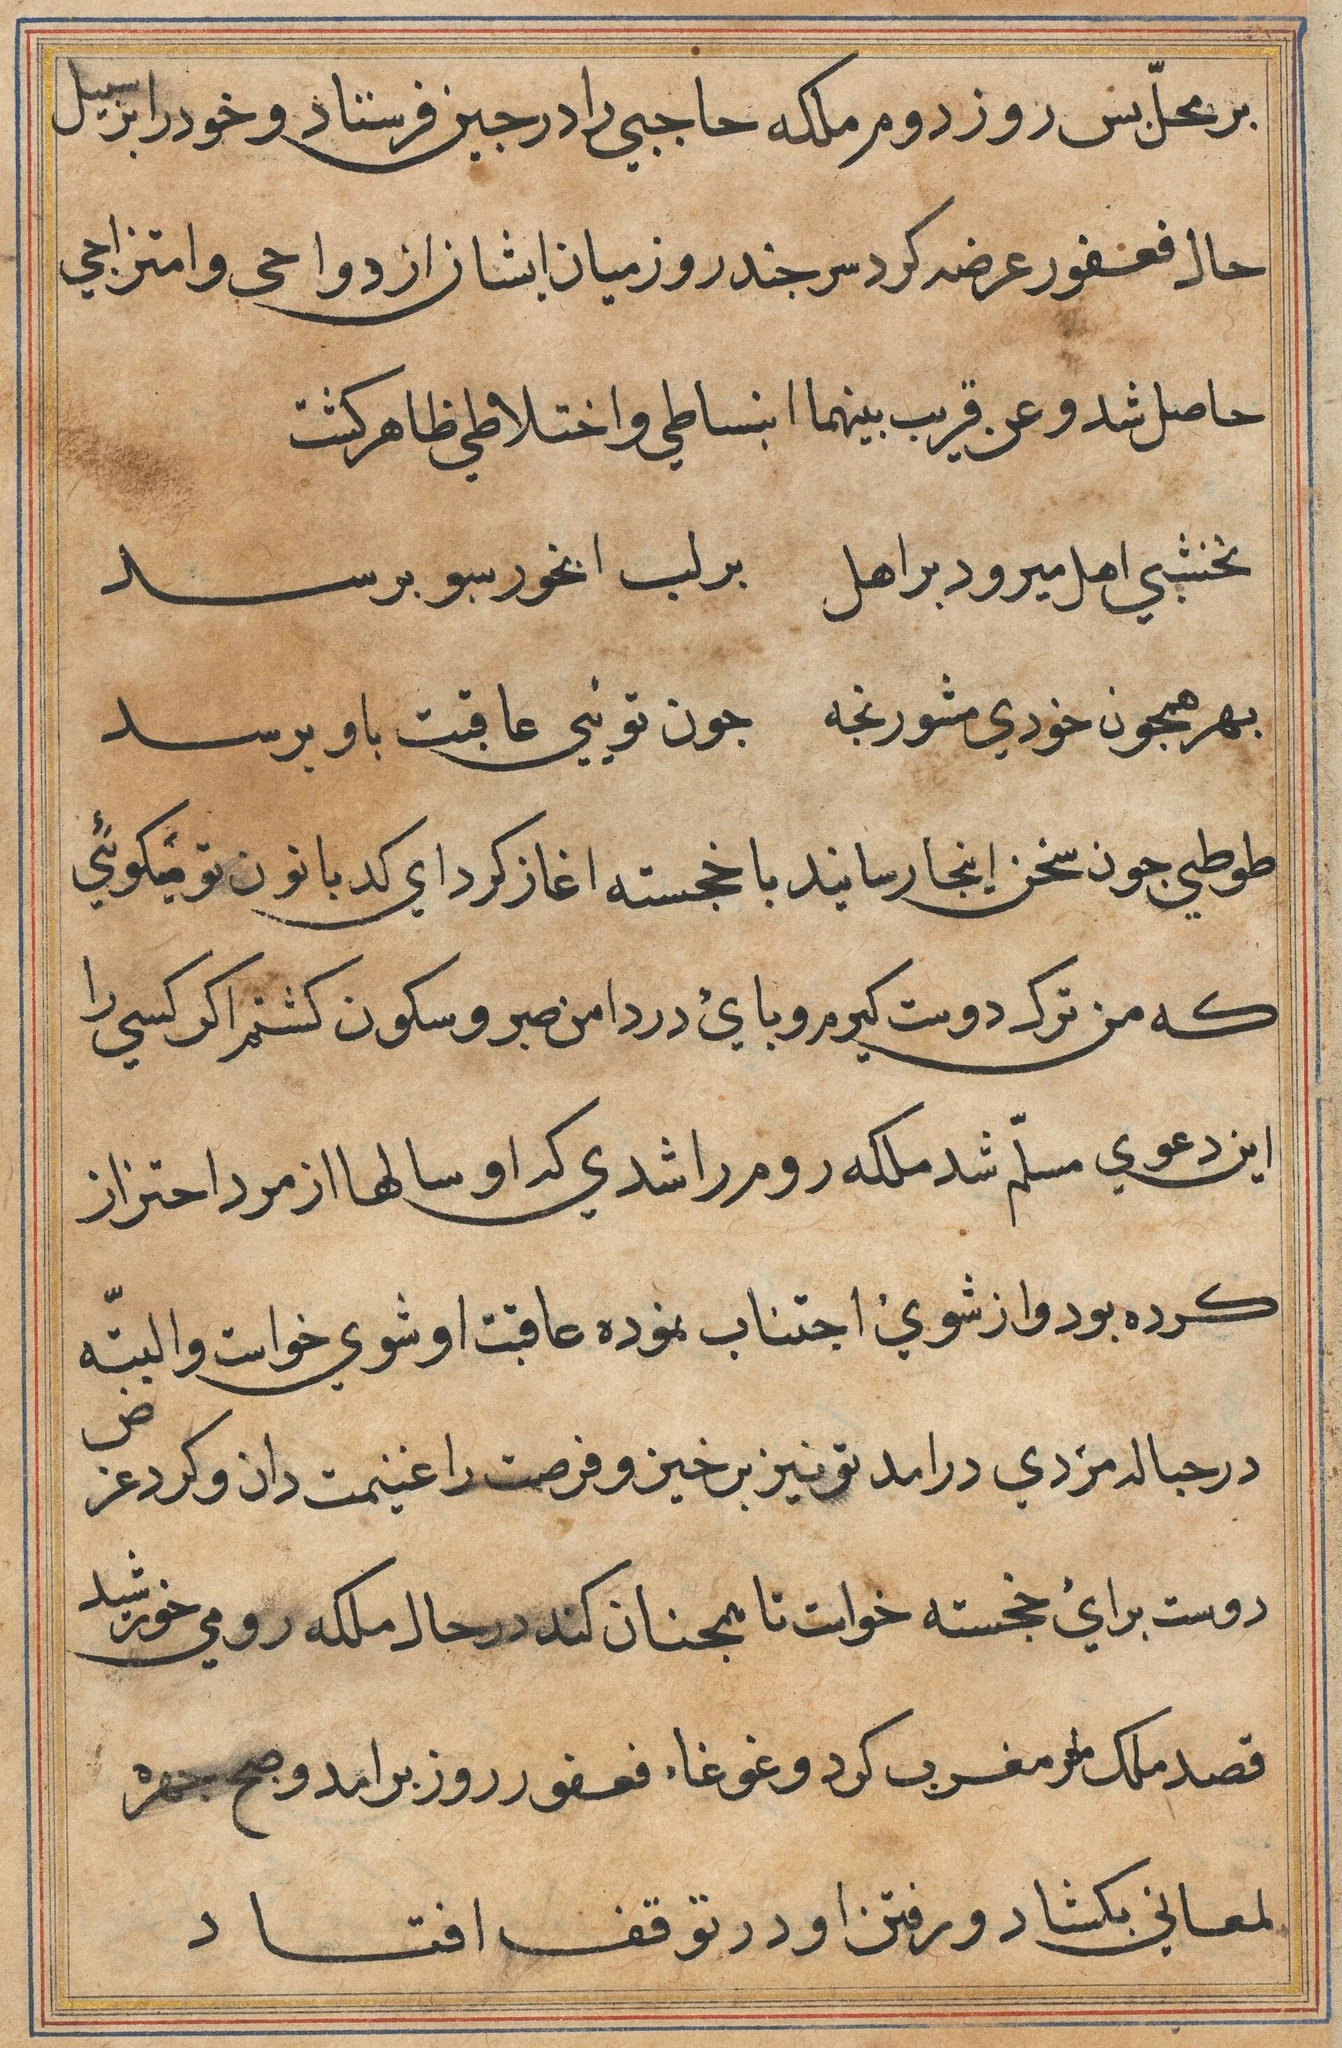 بر محلّ بس روز دوم ملکه حاجبي را در جين فرستاد و خود را بر سبيل
حال فغفور عرضه کرد سر جند روز ميان ايشان ازدواجي وامتزاجي
حاصل شد و عن قريب بينهما انبساطي واختلاطي ظاهر کشت
نخشبي اهل ميرود بر اهل    بر لب ابخور سبو برسد
بهر همجون خودي مشو رنجه    جون تويي عاقبت باو برسد
طوطي جون سخن اينجا رسانيد با خجسته اغاز کرد اي کدبانو ن تو ميکوئي
که من ترک دوست کيرم و پائ در دامن صبر و سکون کشم اکر کسي را
اين دعوي مسلّم شد ملکه روم را شدي که او سالها از مرد احتراز
کرده بود واز شوئ اجتناب نموده عاقبت او شوي خواست والبتّه
در حباله مردي درامد تو نيز برخيز و فرصت را غنيمت دان و کرد عرض
دوست براي خجسته خواست تا همجنان کند در حال ملکه رومي خورشيد
قصد ملک مغرب کرد و غوغاء فغفور روز برامد و صبح جهره
لمعاني بکشاد و رفتن او در توقف افتاد